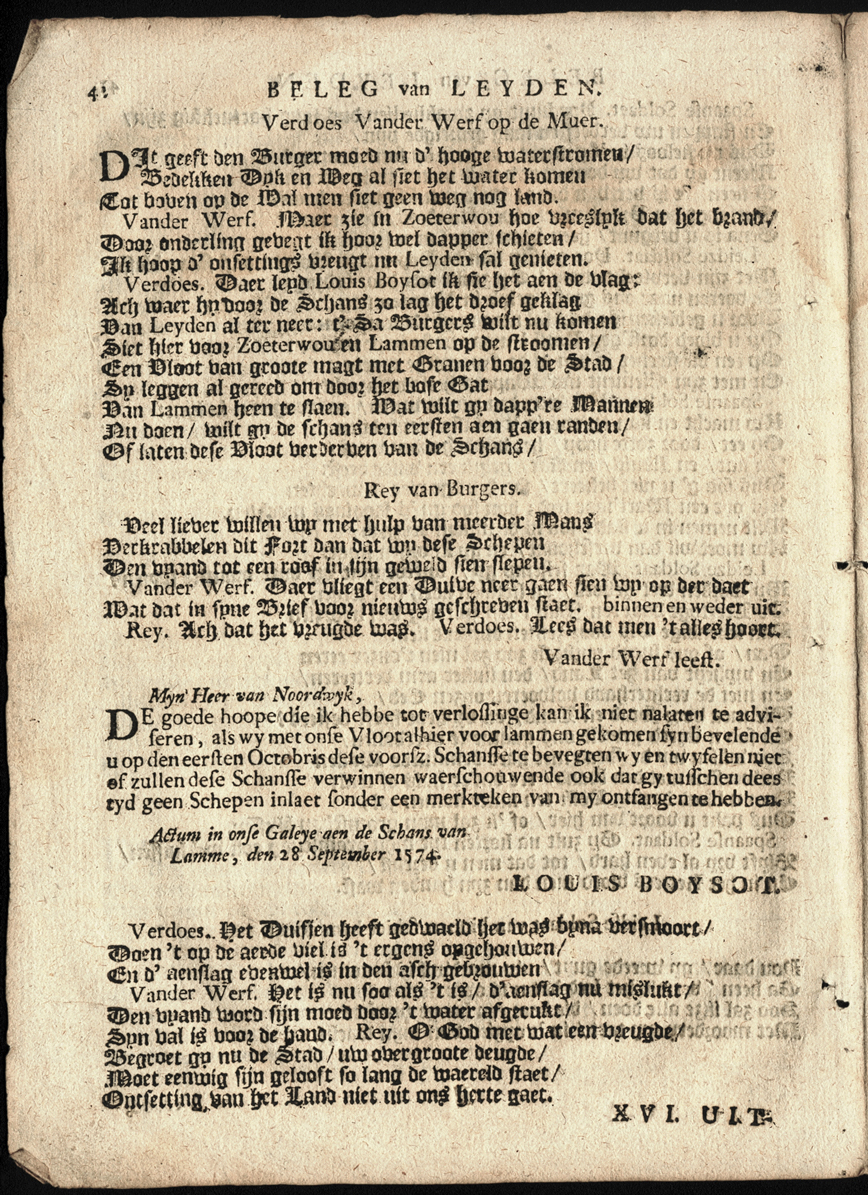 BELEG van LEYDEN.
Verdoes Vander Werf op de Muer.
DIt geeft den Burger moed nu d' hooge waterstromen/
Bedekken Dyk en Weg al siet het water komen
Tot boven op de Wal men siet geen weg nog land.
Vander Werf. Maer zie in Zoeterwou hoe vreeslyk dat het brand/
Door onderling gevegt ik hoor wel dapper schieten/
Ik hoop d' onsettings vreugt nu Leyden sal genieten.
Verdoes. Daer leyd Louis Boysot ik sie het aen de vlag:
Ach waer hy door de Schans zo lag het droef geklag
Van Leyden al ter neer: t' Sa Burgers wilt nu komen
Siet hier voor Zoeterwou en Lammen op de stroomen/
Een Vloot van groote magt met Granen voor de Stad/
Sy leggen al gereed om door het bose Gat
Van Lammen heen te slaen. Wat wilt gy dapp're Mannen
Nu doen/ wilt gy de schans ten eersten aen gaen randen/
Of laten dese Vloot verderven van de Schans/
Rey van Burgers.
Veel liever willen wy met hulp van meerder Mans
Verkrabbelen dit Fort dan dat wy dese Schepen
Den vyand tot een roof in sijn geweld sien slepen.
Vander Werf. Daer vliegt een Duive neer gaen sien wy op der daet
Wat dat in syne Brief voor nieuws geschreven staet. binnen en weder uit.
Rey. Ach dat het vreugde was. Verdoes. Lees dat men 't alles hoort.
Vander Werf leest.
Myn Heer van Noordwyk,
DE goede hoope die ik hebbe tot verlossinge kan ik niet nalaten te advi-
seren, als wy met onse Vloot alhier voor lammen gekomen syn bevelende
u op den eersten Octobris dese voorsz. Schansse te bevegten wy en twyfelen niet
of zullen dese Schansse verwinnen waerschouwende ook dat gy tusschen dees
tyd geen Schepen inlaet sonder een merkteken van my ontfangen te hebben.
Actum in onse Galeye aen de Schans van
Lamme, den 28 September 1574.
LOUIS BOYSOT.
Verdoes. Het Duifjen heeft gedwaeld het was byna versmoort/
Doen 't op de aerde viel is 't ergens opgehouwen/
En d' aenslag evenwel is in den asch gebrouwen
Vander Werf. Het is nu soo als 't is/ d'aenslag nu mislukt/
Den vyand word sijn moed door 't water afgerukt/
Syn val is voor de hand. Rey. O God met wat een vreugde/
Begroet gy nu de Stad/ uw overgroote deugde/
Moet eenwig sijn gelooft so lang de waereld staet/
Ontsetting van het Land niet uit ons herte gaet.
XVI. UIT-